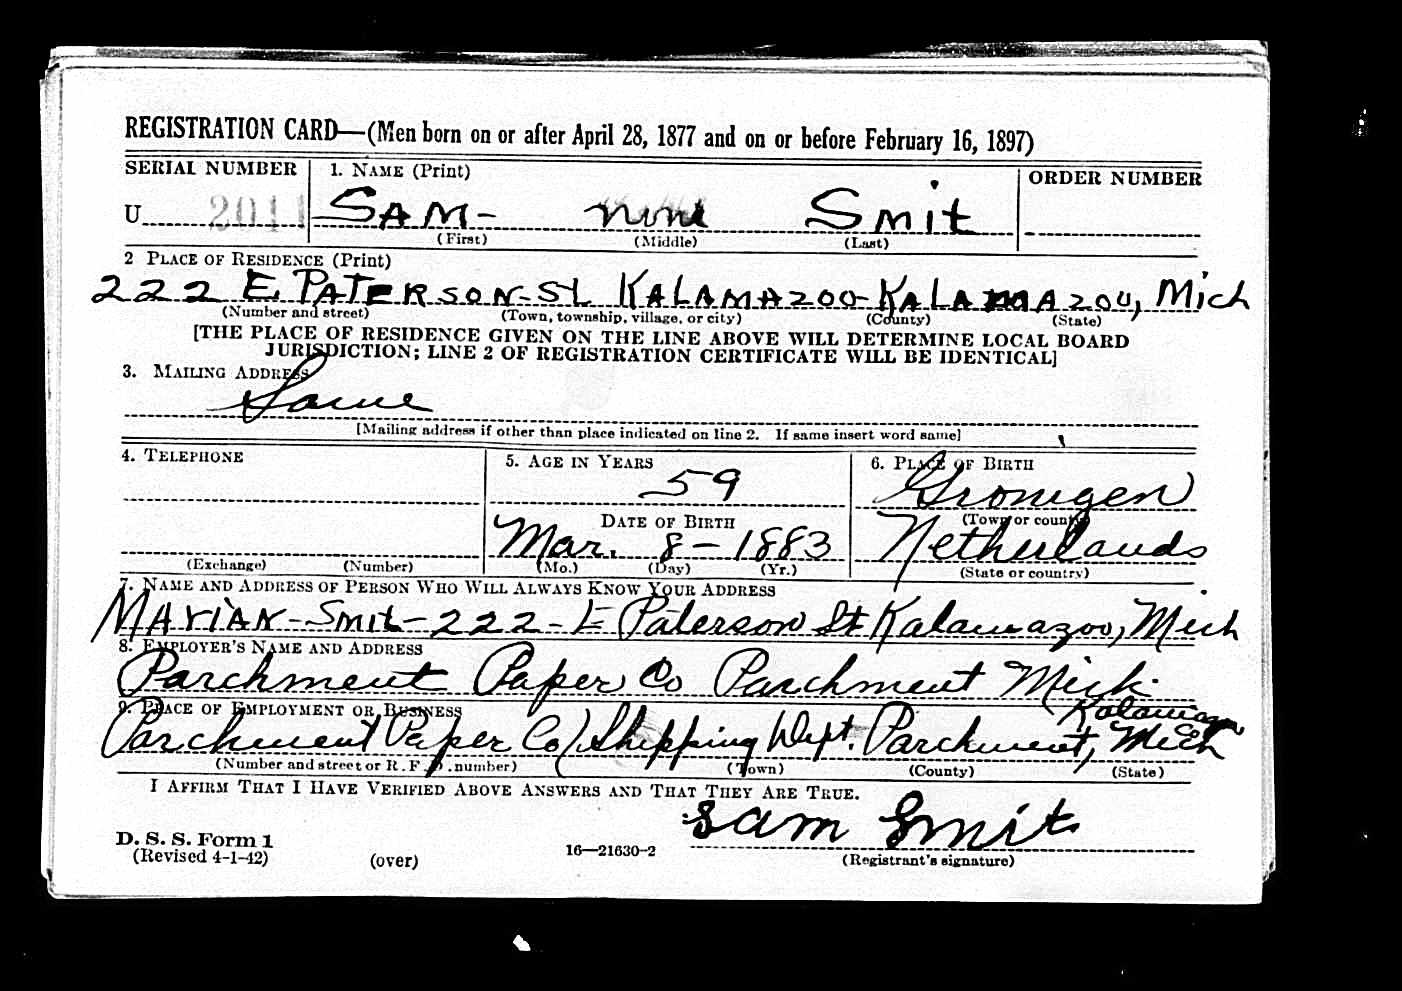 REGISTRATION CARD—(Men born on or after April 28, 1877 and on or before February 16, 1897)
SERIAL NUMBER 1. NAME (Print) ORDER NUMBER
U 2011 SAM- none Smit
(First) (Middle) (Last)
2 PLACE OF RESIDENCE (Print)
222 E. PATERSON-St KALAMAZOO-KALAMAZOO, Mich
(Number and street) (Town, township, village, or city) (County) (State)
[THE PLACE OF RESIDENCE GIVEN ON THE LINE ABOVE WILL DETERMINE LOCAL BOARD
JURISDICTION; LINE 2 OF REGISTRATION CERTIFICATE WILL BE IDENTICAL]
3. MAILING ADDRESS
Same
[Mailing address if other than place indicated on line 2. If same insert word same]
4. TELEPHONE 5. AGE IN YEARS 6. PLACE OF BIRTH
59 Gronigen
DATE OF BIRTH (Town or county)
Mar. 8-1883 Netherlands
(Exchange) (Number) (Mo.) (Day) (Yr.) (State or country)
7. NAME AND ADDRESS OF PERSON WHO WILL ALWAYS KNOW YOUR ADDRESS
MAriAN-Smit-222-E Paterson St Kalamazoo, Mich
8. EMPLOYER'S NAME AND ADDRESS
Parchment Paper Co Parchment Mich.
9. PLACE OF EMPLOYMENT OR BUSINESS Kalamazoo
Parchment Paper Co (Shipping Dept. Parchment, Mich
(Number and street or R. F. D. number) (Town) (County) (State)
I AFFIRM THAT I HAVE VERIFIED ABOVE ANSWERS AND THAT THEY ARE TRUE.
Sam Smit
D. S. S. Form 1
(Revised 4-1-42) (over) 16—21630-2 (Registrant's signature)